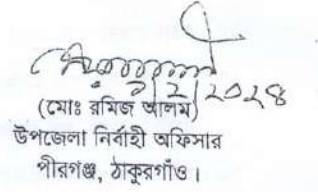 ২০২৪
(মোঃ রমিজ আলম)
উপজেলা নির্বাহী অফিসার
পীরগঞ্জ, ঠাকুরগাঁও।